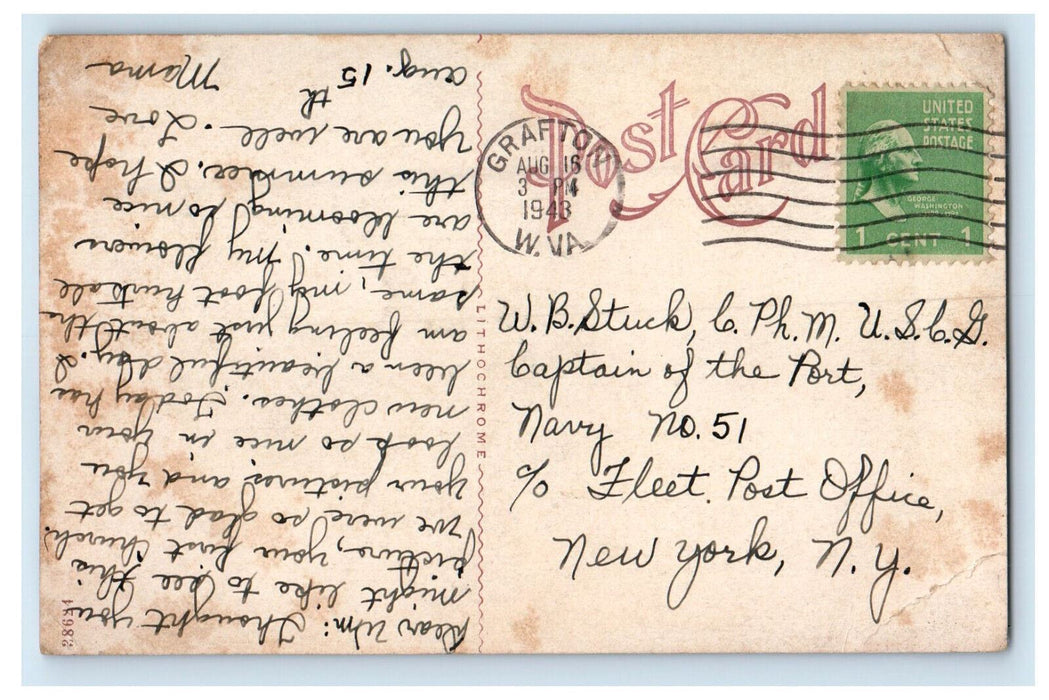 Post Card
GRAFTON
AUG 16
3 PM
1943
W. VA.
UNITED
STATES
POSTAGE
GEORGE
WASHINGTON
1 CENT 1
W. B. Stuck, C. Ph. M. U. S. C. G.
Captain of the Port,
Navy No. 51
c/o Fleet Post Office,
New York, N. Y.
LITHOCHROME
Dear Wm: Thought you
might like to see this
picture, your first church.
We were so glad to get
your pictures and you
look so nice in your
new clothes. Today has
been a beautiful day. I
am feeling just about the
same, my foot hurts all
the time. My flowers
are blooming so nice
this summer. I hope
you are well. Love
Aug. 15th Mama